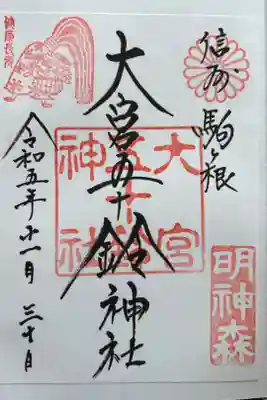 信州 駒ヶ根
大宮五十鈴神社
令和五年十一月三十日
大宮
五十鈴
神社
明神森